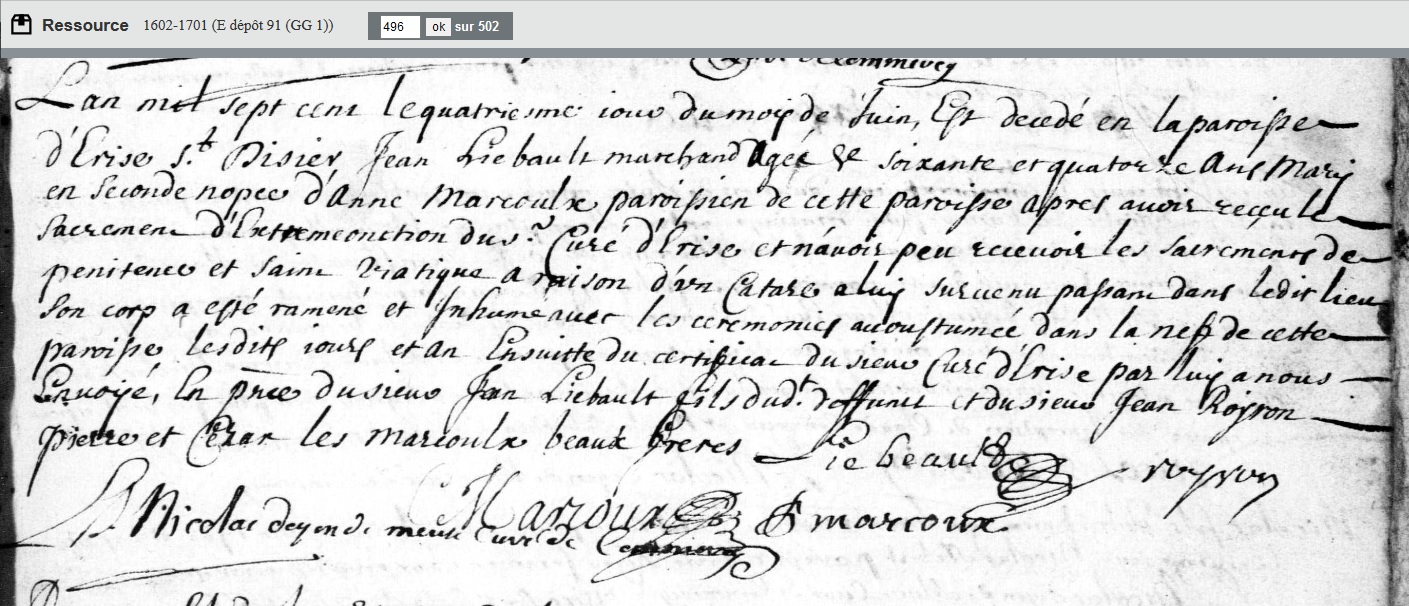 Ressource 1602-1701 (E dépôt 91 (GG 1)) 496 ok sur 502
Lan mil sept cent le quatriesme jour du moys de Juin, Est decedé en la paroisse
d'Erise s.t Disier Jean Liebault marchand Agee de soixante et quatorze Ans Mary
en seconde nopce d'Anne Marcoulx paroissien de cette paroisse apres avoir reçu le
sacrement d'Extremeonction du s.r Curé d'Erise et n'avoir peu recevoir les sacrements de
penitence et saint Viatique a raison d'vn Catare a luy survenu passant dans ledit lieu
son corp a esté ramené et Inhumé avec les ceremonies acoustumée dans la nef de cette
paroisse lesdits jours et an Ensuitte du certificat du sieur Curé d'Erise par luy a nous
Envoyé, En pnce du sieur Jean Liebault fils dud.t deffunct et du sieur Jean Royson
Pierre et Cezar les marcoulx beaux freres Liebeault royson
P Marcoux marcoux
Nicolas doyen de meuse curé de